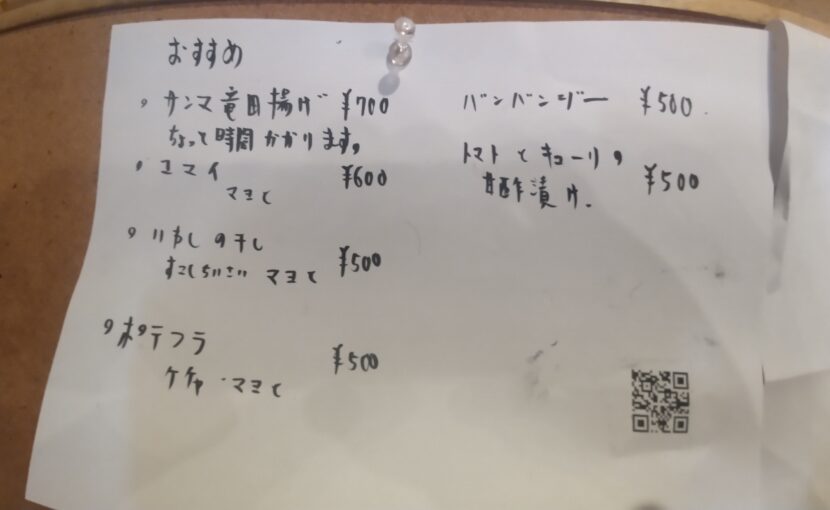 おすすめ
サンマ竜田揚げ ¥700
ちょって時間かかります。
コマイ ¥600
マヨと
いわしの干し ¥500
すこしちいさい マヨと
ポテフラ ¥500
ケチャ・マヨと
バンバンジー ¥500
トマトとキューリ
甘酢漬け. ¥500